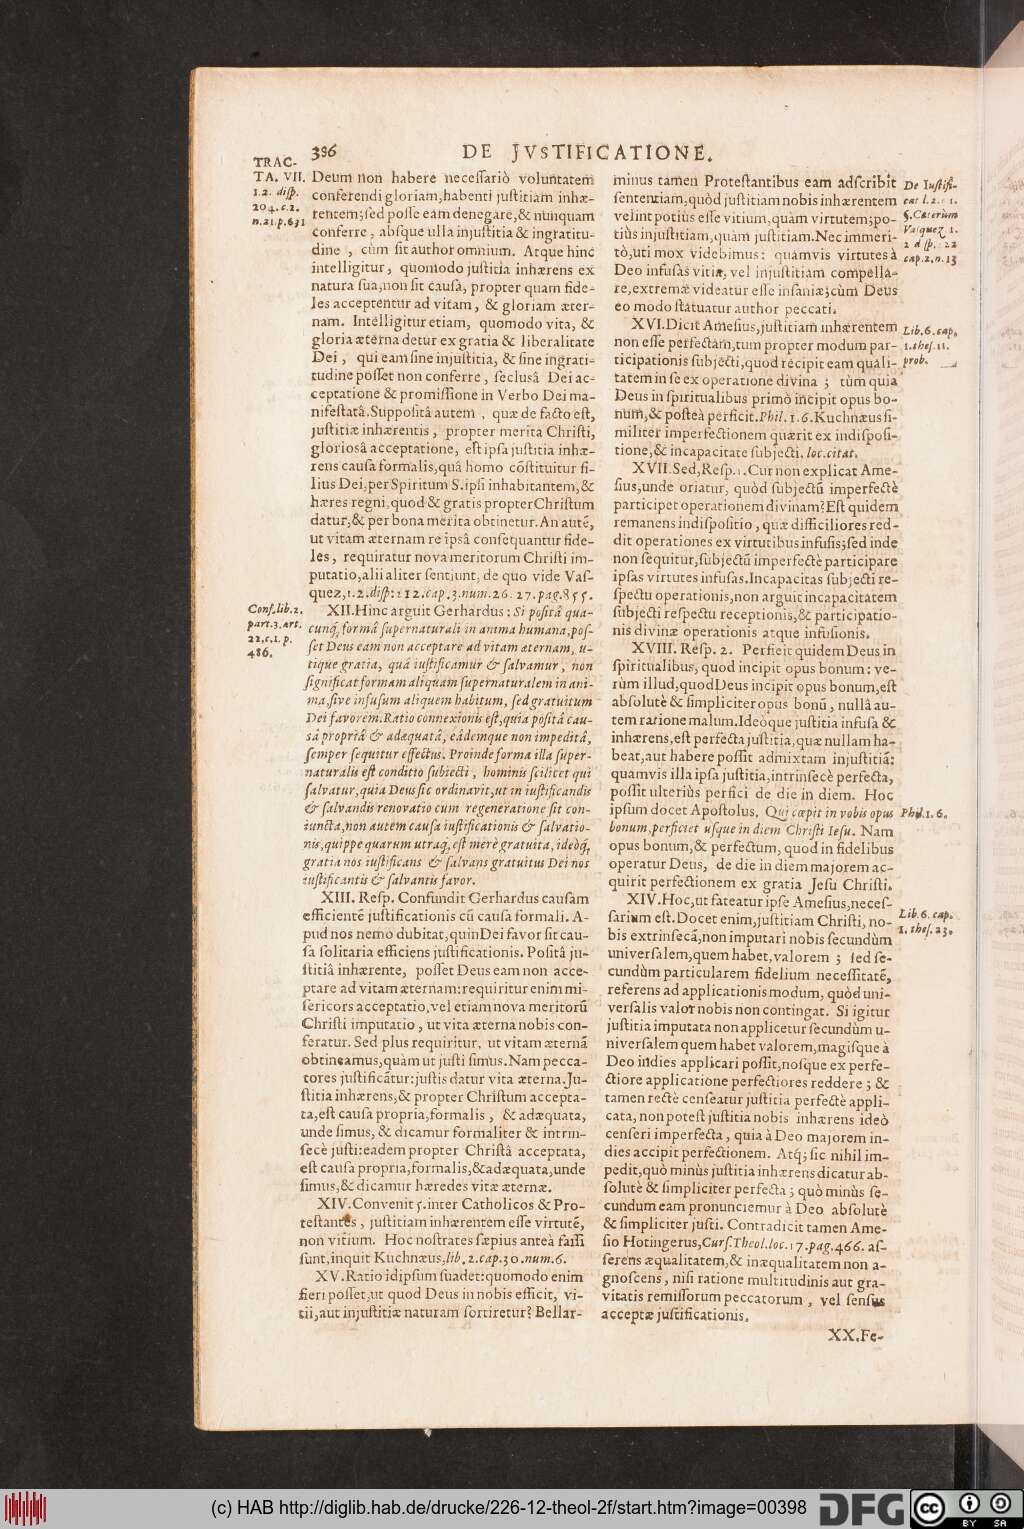 386 DE JVSTIFICATIONE.
TRAC-
TA. VII.
1.2. diſp.
204.c.2.
n.21.p.631
Deum non habere neceſſariò voluntatem
conferendi gloriam, habenti juſtitiam inhæ-
rentem; ſed poſſe eam denegare, & nunquam
conferre, abſque ulla injuſtitia & ingratitu-
dine, cùm ſit author omnium. Atque hinc
intelligitur, quomodo juſtitia inhærens ex
natura ſua, non ſit cauſa, propter quam fide-
les acceptentur ad vitam, & gloriam æter-
nam. Intelligitur etiam, quomodo vita, &
gloria æterna detur ex gratia & liberalitate
Dei, qui eam ſine injuſtitia, & ſine ingrati-
tudine poſſet non conferre, ſecluſâ Dei ac-
ceptatione & promiſſione in Verbo Dei ma-
nifeſtatâ. Suppoſitâ autem, quæ de facto eſt,
juſtitiæ inhærentis, propter merita Chriſti,
glorioſâ acceptatione, eſt ipſa juſtitia inhæ-
rens cauſa formalis, quâ homo cõſtituitur fi-
lius Dei, per Spiritum S. ipſi inhabitantem, &
hæres regni, quod & gratis propter Chriſtum
datur, & per bona merita obtinetur. An autẽ,
ut vitam æternam re ipsâ conſequantur fide-
les, requiratur nova meritorum Chriſti im-
putatio, alii aliter ſentiunt, de quo vide Vaſ-
quez, 1.2. diſp. 212. cap. 3. num. 26. 27. pag. 855.
Conf. lib. 2.
part. 3. art.
22, c. 1. p.
486.
XII. Hinc arguit Gerhardus: Si poſitâ qua-
cunq, formâ ſupernaturali in anima humana, poſ-
ſet Deus eam non acceptare ad vitam æternam, u-
tique gratia, quâ iuſtificamur & ſalvamur, non
ſignificat formam aliquam ſupernaturalem in ani-
ma, ſive infuſum aliquem habitum, ſed gratuitum
Dei favorem. Ratio connexionis eſt, quia poſitâ cau-
sâ propriâ & adæquatâ, eâdemque non impeditâ,
ſemper ſequitur effectus. Proinde forma illa ſuper-
naturalis eſt conditio ſubiecti, hominis ſcilicet qui
ſalvatur, quia Deus ſic ordinavit, ut in iuſtificandis
& ſalvandis renovatio cum regeneratione ſit con-
iuncta, non autem cauſa iuſtificationis & ſalvatio-
nis, quippe quarum utraq, eſt merè gratuita, ideòq,
gratia nos iuſtificans & ſalvans gratuitus Dei nos
iuſtificantis & ſalvantis favor.
XIII. Reſp. Confundit Gerhardus cauſam
efficientẽ juſtificationis cũ cauſa formali. A-
pud nos nemo dubitat, quin Dei favor ſit cau-
ſa ſolitaria efficiens juſtificationis. Poſitâ ju-
ſtitiâ inhærente, poſſet Deus eam non acce-
ptare ad vitam æternam: requiritur enim mi-
ſericors acceptatio, vel etiam nova meritorũ
Chriſti imputatio, ut vita æterna nobis con-
feratur. Sed plus requiritur, ut vitam æternã
obtineamus, quàm ut juſti ſimus. Nam pecca-
tores juſtificãtur: juſtis datur vita æterna. Ju-
ſtitia inhærens, & propter Chriſtum accepta-
ta, eſt cauſa propria, formalis, & adæquata,
unde ſimus, & dicamur formaliter & intrin-
ſecè juſti: eadem propter Chriſtũ acceptata,
eſt cauſa propria, formalis, & adæquata, unde
ſimus, & dicamur hæredes vitæ æternæ.
XIV. Convenit 5. inter Catholicos & Pro-
teſtantes, juſtitiam inhærentem eſſe virtutẽ,
non vitium. Hoc noſtrates ſæpius anteà faſſi
ſunt, inquit Kuchnæus, lib. 2. cap. 30. num. 6.
XV. Ratio idipſum ſuadet: quomodo enim
fieri poſſet, ut quod Deus in nobis efficit, vi-
tii, aut injuſtitiæ naturam ſortiretur? Bellar-
minus tamen Proteſtantibus eam adſcribit
ſententiam, quòd juſtitiam nobis inhærentem
velint potiùs eſſe vitium, quàm virtutem; po-
tiùs injuſtitiam, quàm juſtitiam. Nec immeri-
tò, uti mox videbimus: quamvis virtutes à
Deo infuſas vitia, vel injuſtitiam compella-
re, extremæ videatur eſſe inſaniæ; cùm Deus
eo modo ſtatuatur author peccati.
De Iuſtifi-
cat l. 2. c. 1.
§. Cæterùm
Vaſquez 1.
2 diſp. 22
cap. 2, n. 13
XVI. Dicit Ameſius, juſtitiam inhærentem
non eſſe perfectam, tum propter modum par-
ticipationis ſubjecti, quod recipit eam quali-
tatem in ſe ex operatione divina; tùm quia
Deus in ſpiritualibus primò incipit opus bo-
num, & poſteà perficit. Phil. 1. 6. Kuchnæus ſi-
militer imperfectionem quærit ex indiſpoſi-
tione, & incapacitate ſubjecti. loc. citat.
Lib. 6. cap.
1. theſ. 11.
prob.
XVII. Sed, Reſp. 1. Cur non explicat Ame-
ſius, unde oriatur, quòd ſubjectũ imperfectè
participet operationem divinam? Eſt quidem
remanens indiſpoſitio, quæ difficiliores red-
dit operationes ex virtutibus infuſis; ſed inde
non ſequitur, ſubjectũ imperfectè participare
ipſas virtutes infuſas. Incapacitas ſubjecti re-
ſpectu operationis, non arguit incapacitatem
ſubjecti reſpectu receptionis, & participatio-
nis divinæ operationis atque infuſionis.
XVIII. Reſp. 2. Perficit quidem Deus in
ſpiritualibus, quod incipit opus bonum: ve-
rùm illud, quod Deus incipit opus bonum, eſt
abſolutè & ſimpliciter opus bonũ, nullâ au-
tem ratione malum. Ideóque juſtitia infuſa &
inhærens, eſt perfecta juſtitia, quæ nullam ha-
beat, aut habere poſſit admixtam injuſtitiã:
quamvis illa ipſa juſtitia, intrinſecè perfecta,
poſſit ulteriùs perfici de die in diem. Hoc
ipſum docet Apoſtolus, Qui cœpit in vobis opus
bonum, perficiet uſque in diem Chriſti Ieſu. Nam
opus bonum, & perfectum, quod in fidelibus
operatur Deus, de die in diem majorem ac-
quirit perfectionem ex gratia Jeſu Chriſti.
Phil. 1. 6.
XIV. Hoc, ut fateatur ipſe Ameſius, neceſ-
ſarium eſt. Docet enim, juſtitiam Chriſti, no-
bis extrinſecã, non imputari nobis ſecundùm
univerſalem, quem habet, valorem; ſed ſe-
cundùm particularem fidelium neceſſitatẽ,
referens ad applicationis modum, quòd uni-
verſalis valor nobis non contingat. Si igitur
juſtitia imputata non applicetur ſecundùm u-
niverſalem quem habet valorem, magiſque à
Deo indies applicari poſſit, noſque ex perfe-
ctiore applicatione perfectiores reddere; &
tamen rectè cenſeatur juſtitia perfectè appli-
cata, non poteſt juſtitia nobis inhærens ideò
cenſeri imperfecta, quia à Deo majorem in-
dies accipit perfectionem. Atq; ſic nihil im-
pedit, quò minùs juſtitia inhærens dicatur ab-
ſolutè & ſimpliciter perfecta; quò minùs ſe-
cundum eam pronunciemur à Deo abſolutè
& ſimpliciter juſti. Contradicit tamen Ame-
ſio Hotingerus, Curſ. Theol. loc. 17. pag. 466. aſ-
ſerens æqualitatem, & inæqualitatem non a-
gnoſcens, niſi ratione multitudinis aut gra-
vitatis remiſſorum peccatorum, vel ſenſus
acceptæ juſtificationis.
Lib. 6. cap.
1. theſ. 23.
XX. Fe-
(c) HAB http://diglib.hab.de/drucke/226-12-theol-2f/start.htm?image=00398
DFG
cc BY SA